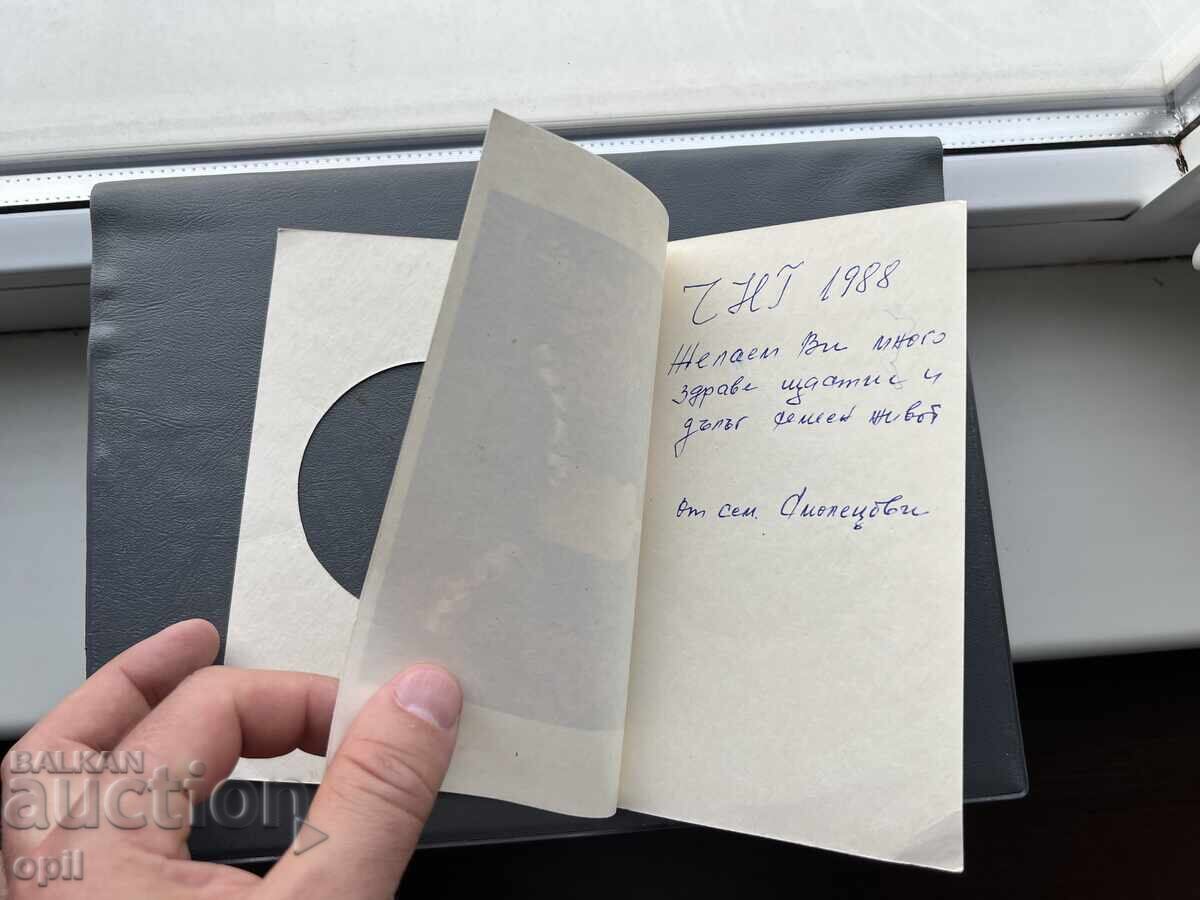 ЧНГ 1988
Желаем Ви много
здраве щастие и
дълъг семеен живот
от сем. Смолецови
BALKAN
auction
opil